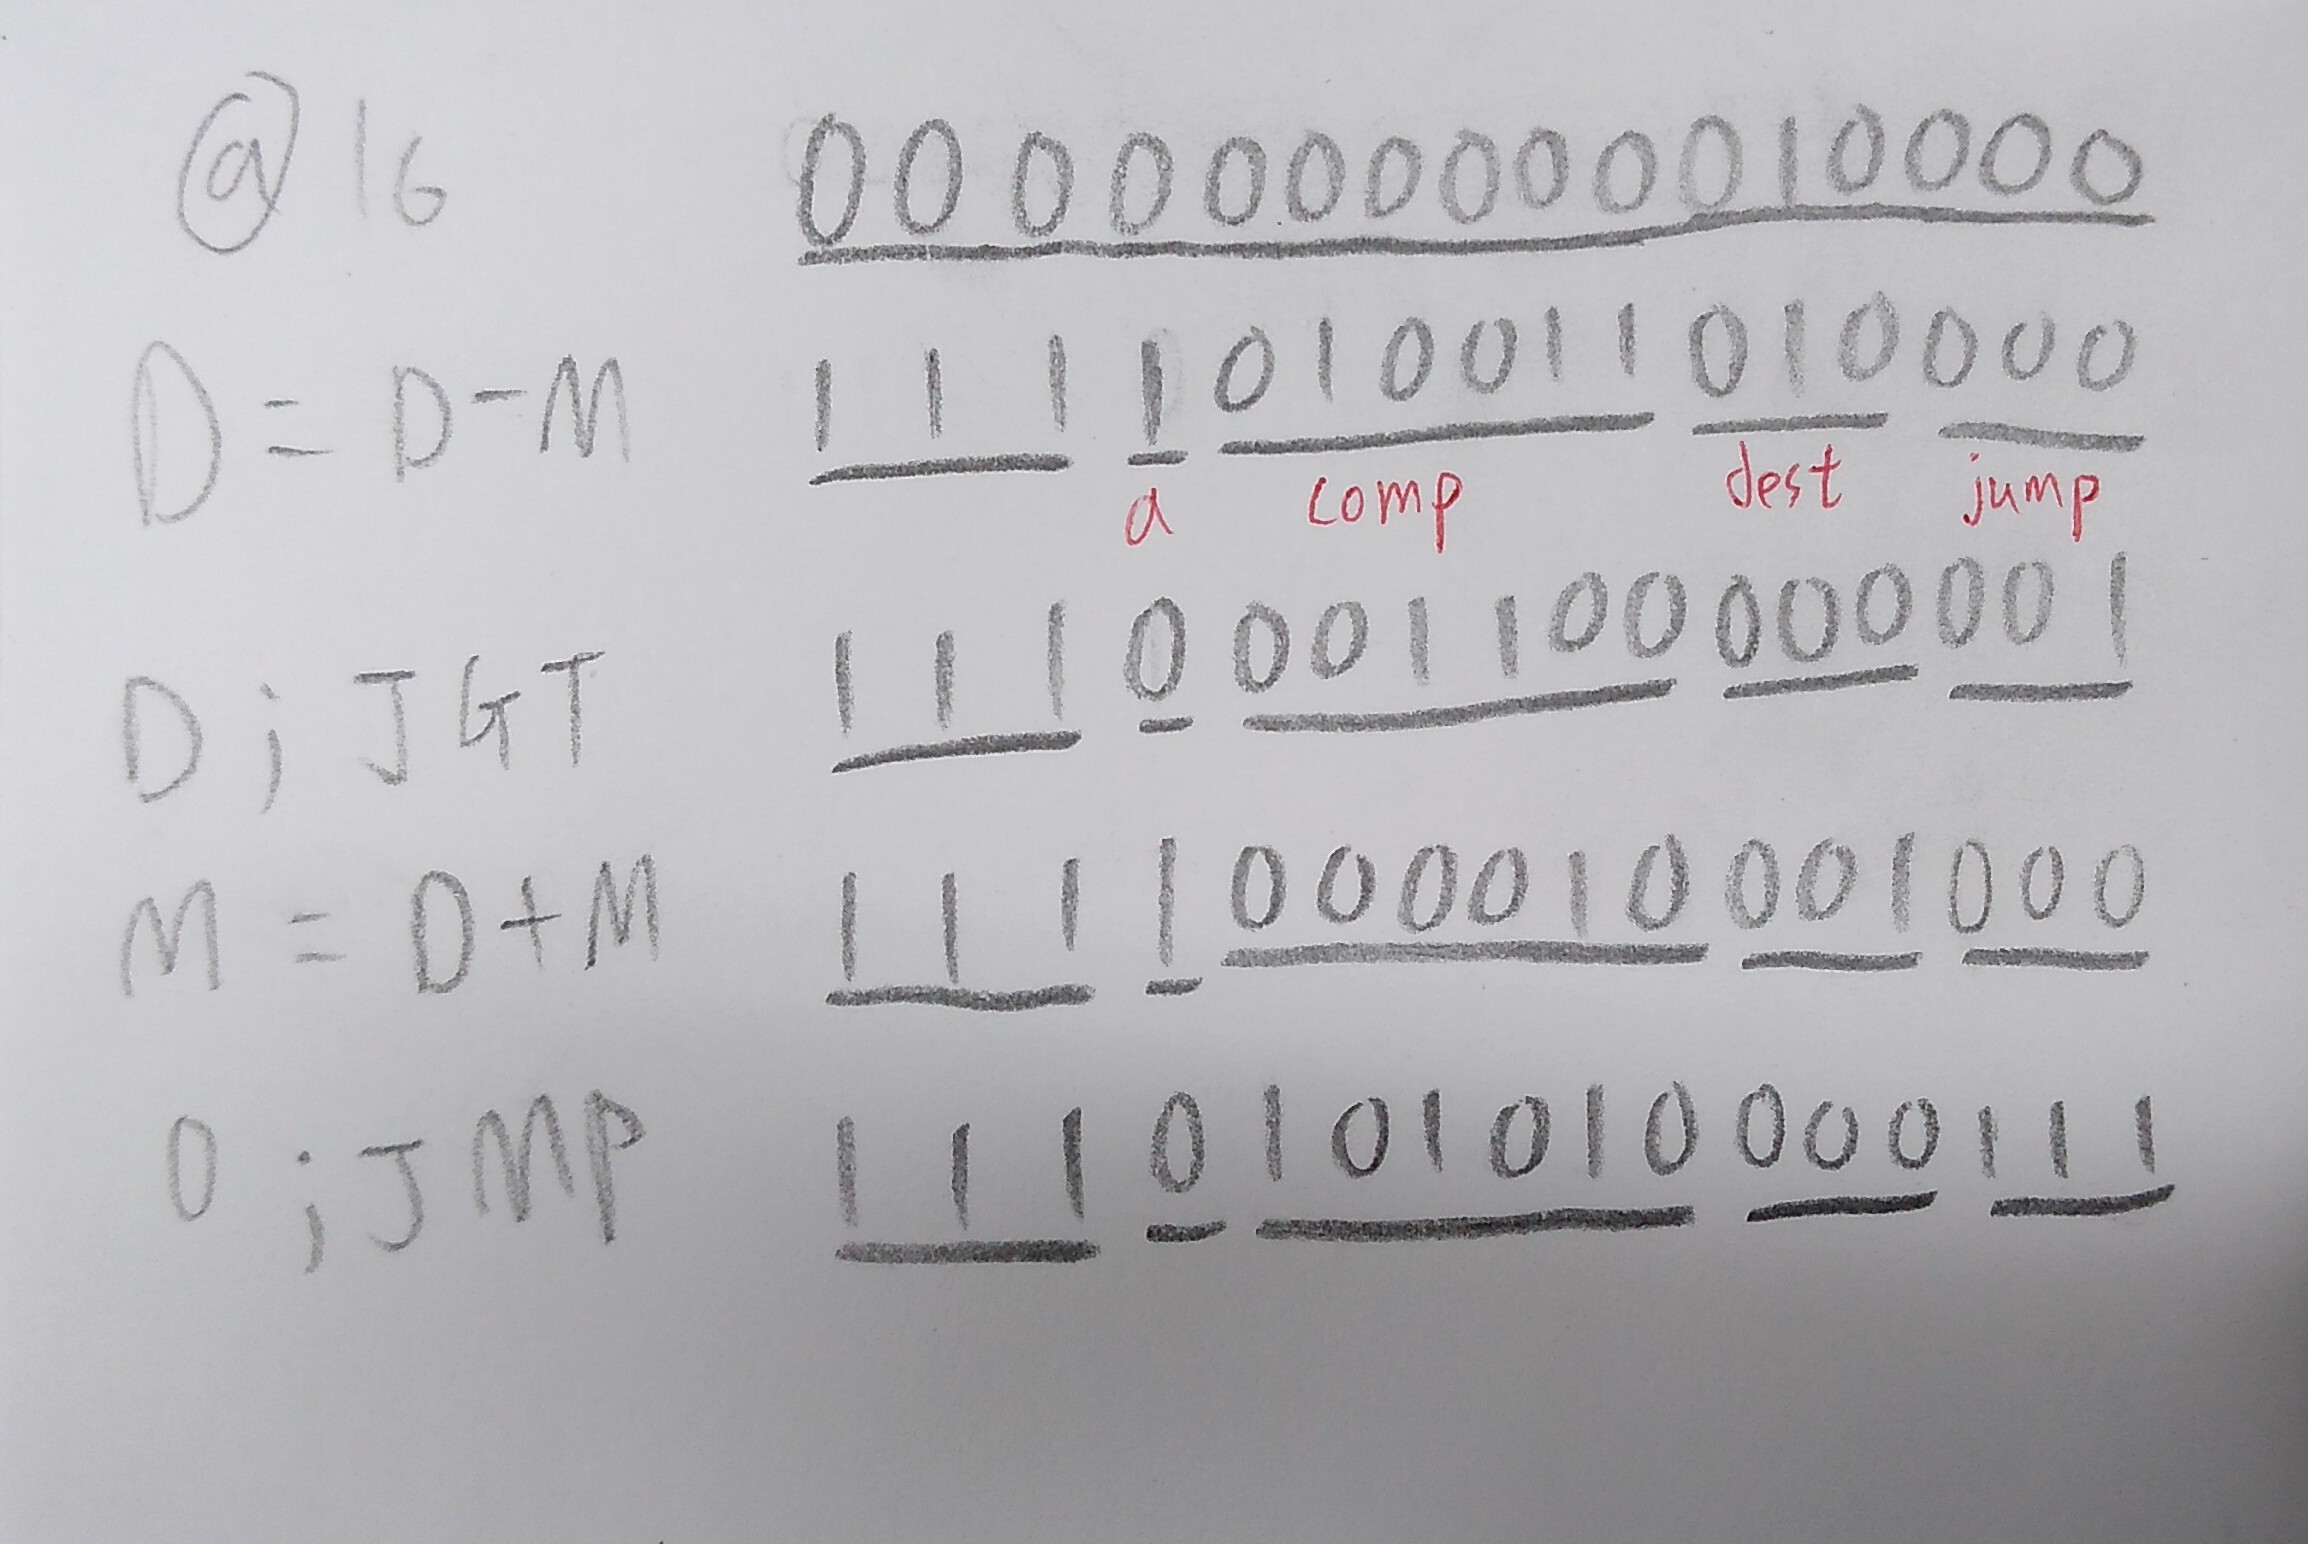 @16 0000000000010000
D=D-M 111 1 010011 010 000
a comp dest jump
D;JGT 111 0 001100 000 001
M=D+M 111 1 000010 001 000
0;JMP 111 0 101010 000 111